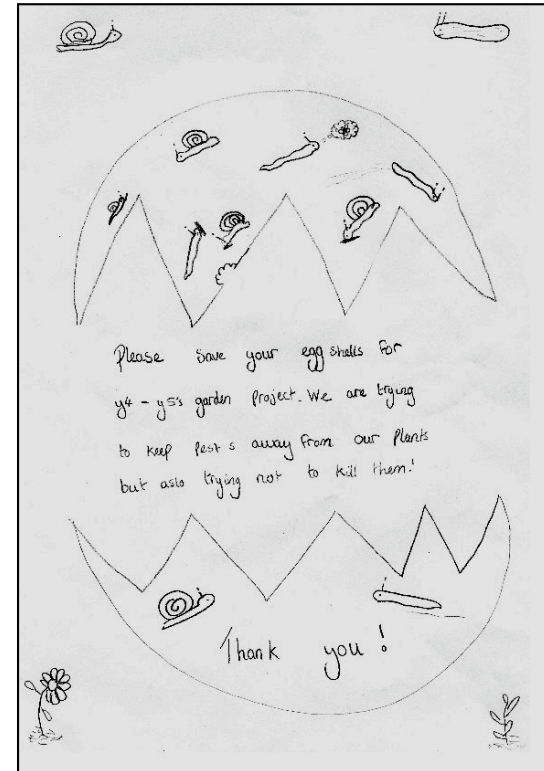 Please save your egg shells for
y4 - y5's garden project. We are trying
to keep pest s away from our plants
but aslo trying not to kill them!
Thank you!